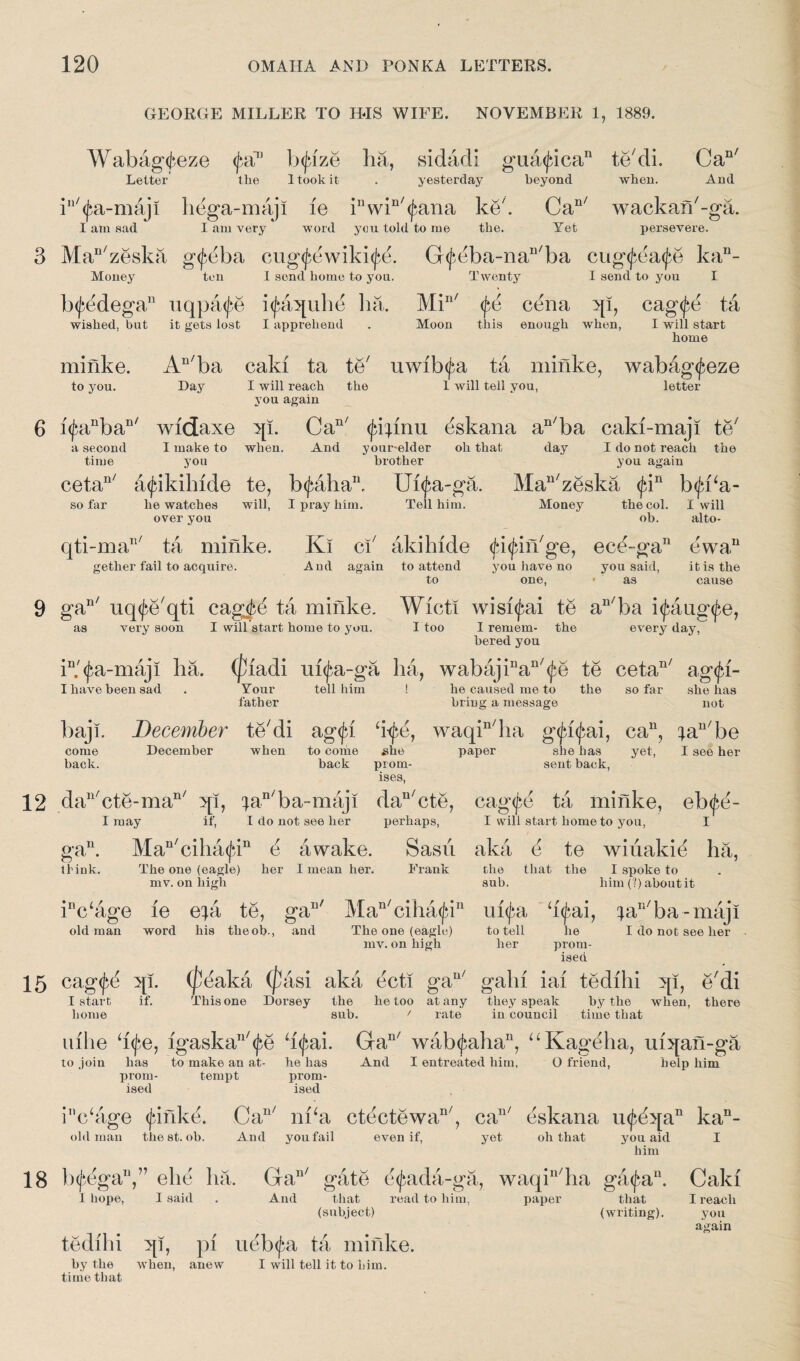 120 OMAHA AND PONKA LETTERS.
GEORGE MILLER TO HIS WIFE. NOVEMBER 1, 1889.
Wabág¢eze ¢aⁿ b¢ízĕ hă, sidádi guá¢icaⁿ tĕ′di. Caⁿ′
Letter the I took it . yesterday beyond when. And
iⁿ′¢a-májĭ héga-májĭ íe iⁿwiⁿ′¢ana kĕ′. Caⁿ′ wackañ′-gă.
I am sad I am very word you told to me the. Yet persevere.
3 Maⁿ′zĕskă g¢éba cug¢éwiki¢é. G¢éba-naⁿ′ba cug¢éa¢ĕ kaⁿ-
Money ten I send home to you. Twenty I send to you I
b¢édegaⁿ uqpá¢ĕ i¢áʞuhé hă. Miⁿ′ ¢é céna ʞĭ, cag¢é tá
wished, but it gets lost I apprehend . Moon this enough when, I will start
home
miñke. Aⁿ′ba cakí ta tĕ′ uwíb¢a tá miñke, wabág¢eze
to you. Day I will reach the I will tell you, letter
you again
6 í¢aⁿbaⁿ′ wíḏaxe ʞĭ. Caⁿ′ ¢ijínu éskana aⁿ′ba cakí-majĭ tĕ′
a second I make to when. And your-elder oh that day I do not reach the
time you brother you again
cetaⁿ′ á¢ikihíde te, b¢áhaⁿ. Uí¢a-gă. Maⁿ′zĕskă ¢iⁿ b¢í‘a-
so far he watches will, I pray him. Tell him. Money the col. I will
over you ob. alto-
qti-maⁿ′ tá miñke. Kĭ cĭ′ ákihíde ¢i¢iñ′ge, ecé-gaⁿ éwaⁿ
gether fail to acquire. And again to attend you have no you said, it is the
to one, as cause
9 gaⁿ′ uq¢ĕ′qti cag¢é tá miñke. Wíctĭ wisí¢ai tĕ aⁿ′ba i¢áug¢e,
as very soon I will start home to you. I too I remem- the every day,
bered you
iⁿ′.¢a-májĭ hă. ₵íadi uí¢a-gă hă, wabájiⁿaⁿ′¢ĕ tĕ cetaⁿ′ ag¢í-
I have been sad . Your tell him ! he caused me to the so far she has
father bring a message not
bajĭ. December tĕ′di ag¢í ‘í¢é, waqiⁿ′ha g¢í¢ai, caⁿ, ʇaⁿ′be
come December when to come she paper she has yet, I see her
back. back prom- sent back,
ises,
12 daⁿ′ctĕ-maⁿ′ ʞĭ, ʇaⁿ′ba-májĭ daⁿ′ctĕ, cag¢é tá miñke, eb¢é-
I may if, I do not see her perhaps, I will start home to you, I
gaⁿ. Maⁿ′cihá¢iⁿ é áwake. Sasú aká é te wiúakié hă,
think. The one (eagle) her I mean her. Frank the that the I spoke to .
mv. on high sub. him (?) about it
iⁿc‘áge íe eʇá tĕ, gaⁿ′ Maⁿ′cihá¢iⁿ uí¢a ‘í¢ai, ʇaⁿ′ba-májĭ
old man word his the ob., and The one (eagle) to tell he I do not see her
mv. on high her prom-
ised
15 cag¢é ʞĭ. ₵éaká ₵ási aká éctĭ gaⁿ′ gahí iaí tĕdíhi ʞĭ, ĕ′di
I start if. This one Dorsey the he too at any they speak by the when, there
home sub. rate in council time that
uíhe ‘í¢e, ígaskaⁿ′¢ĕ ‘í¢ai. Gaⁿ′ wáb¢ahaⁿ, “Kagéha, uíʞañ-gă
to join has to make an at- he has And I entreated him, O friend, help him
prom- tempt prom-
ised ised
iⁿc‘áge ¢iñké. Caⁿ′ ní‘a ctéctĕwaⁿ′, caⁿ′ éskana u¢éʞaⁿ kaⁿ-
old man the st. ob. And you fail even if, yet oh that you aid I
him
18 b¢égaⁿ,” ehé hă. Gaⁿ′ gátĕ é¢adá-gă, waqiⁿ′ha gá¢aⁿ. Cakí
I hope, I said . And that read to him, paper that I reach
(subject) (writing). you
again
tĕdíhi ʞĭ, pí uéb¢a tá miñke.
by the when, anew I will tell it to him.
time that